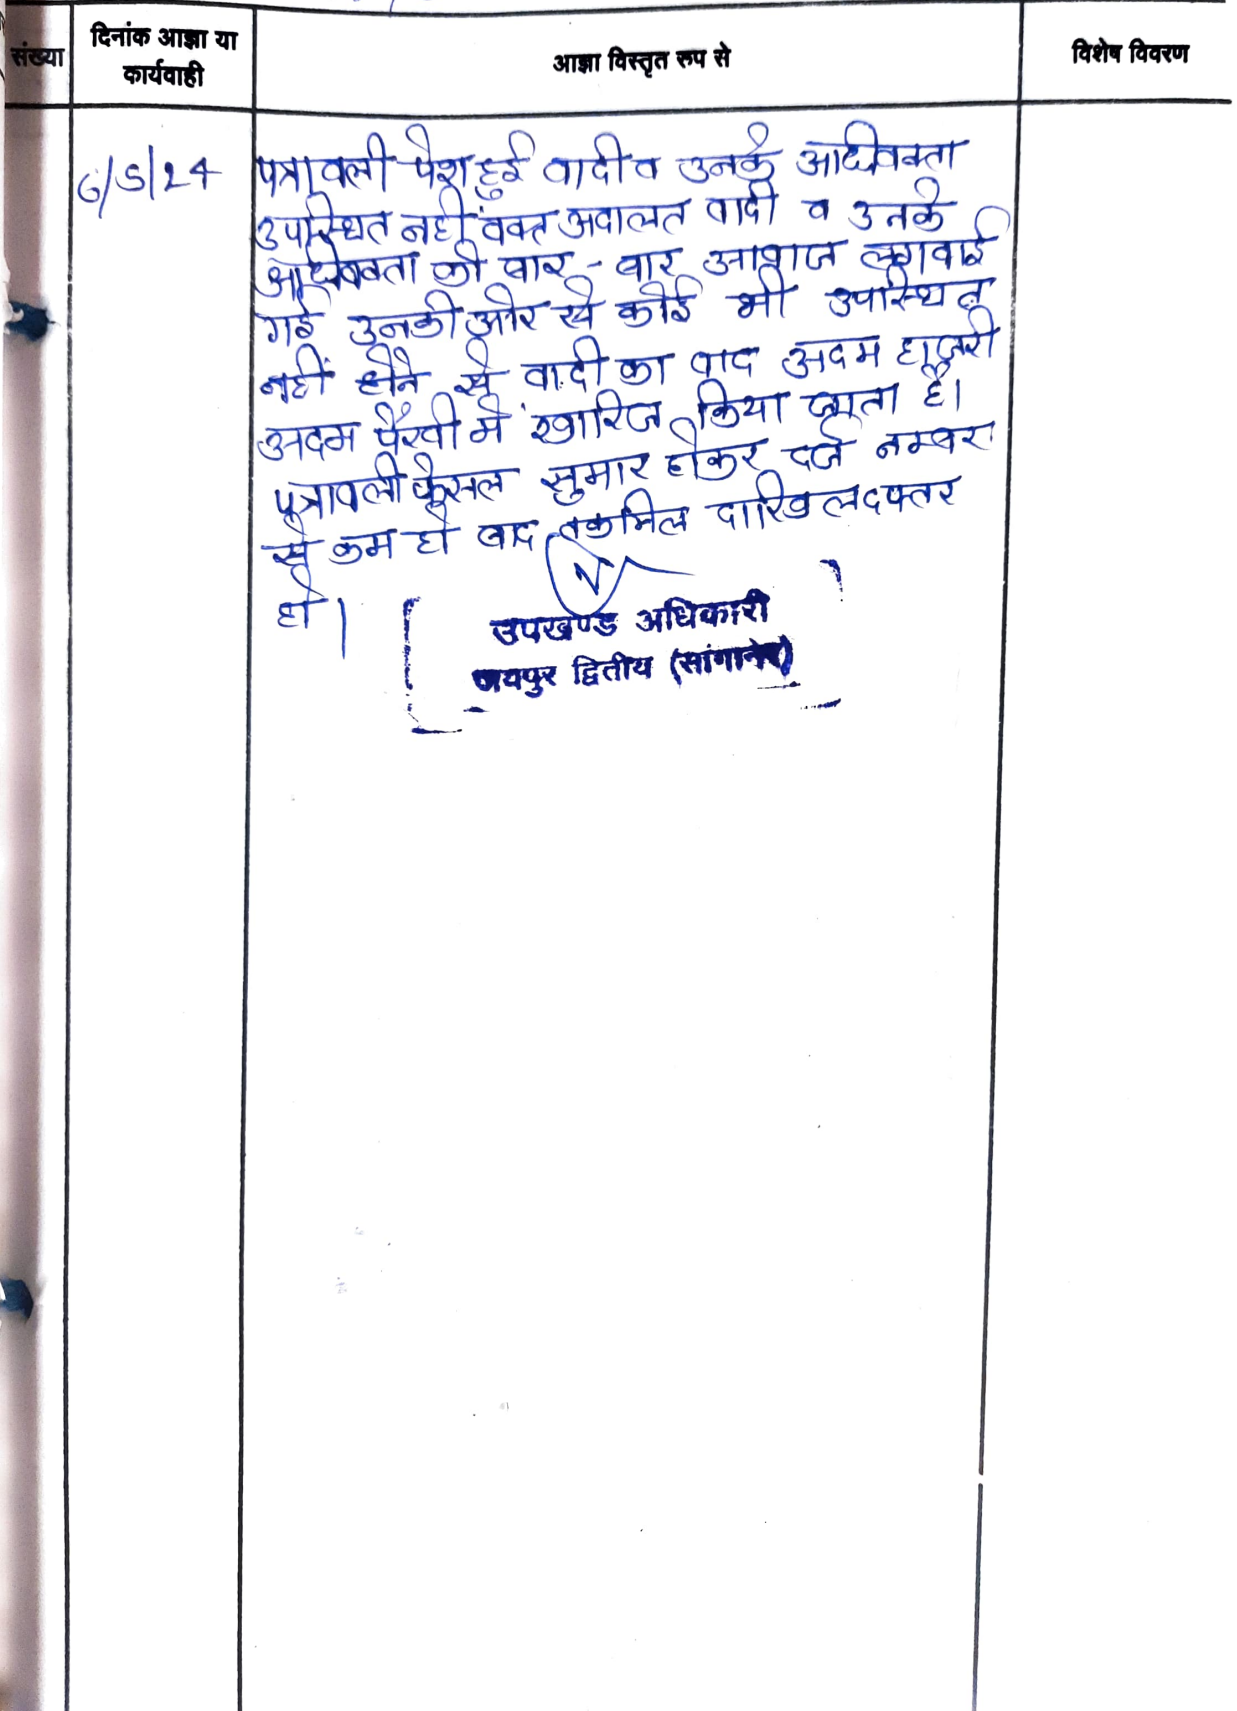 संख्या
दिनांक आज्ञा या
कार्यवाही
आज्ञा विस्तृत रुप से
विशेष विवरण
6/5/24
पत्रावली पेश हुई वादी व उनके अधिवक्ता
उपस्थित नहीं वक्त अदालत वादी व उनके
अधिवक्ता को बार-बार आवाज लगवाई
गई उनकी ओर से कोई भी उपस्थित
नहीं होने से वादी का वाद अदम हाजरी
अदम पैरवी में खारिज किया जाता है।
पत्रावली फैसल सुमार होकर दर्ज नम्बर
से कम हो बाद तकमिल दाखिल दफ्तर
हो।
उपखण्ड अधिकारी
जयपुर द्वितीय (सांगानेर)